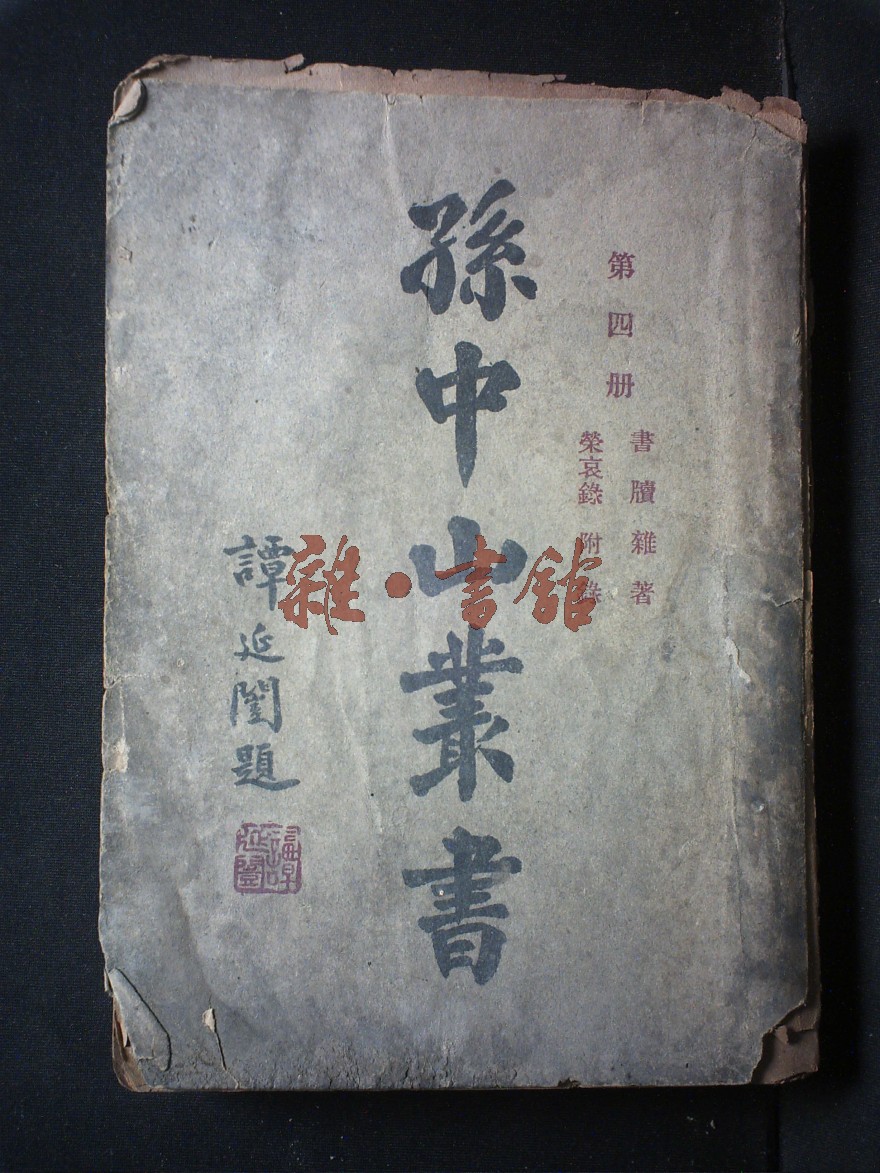 第四册
書牘 雜著
榮哀錄 附錄
孫中山叢書
譚延闓題
譚延闓
雜·書館